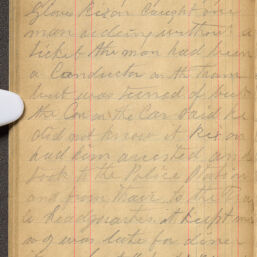 Glover Rison Caught one
man rideing without a
ticket the man had been
a Conductor on the Tram
but was turned of but
the Con on the Car said he
did not know it Rison
had him arrested an
took to the Police Station
and from thair to the
Headquarters it kept me
and was late for diner